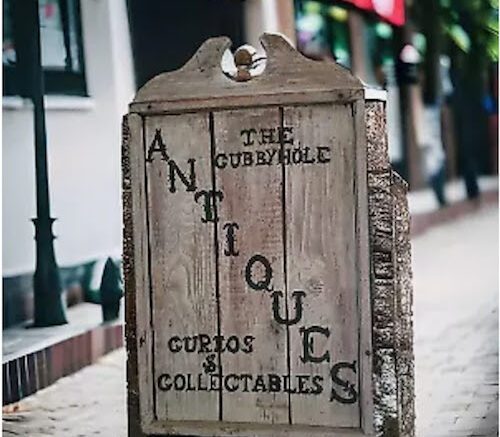 THE
CUBBYHOLE
ANTIQUES
CURIOS
&
COLLECTABLES